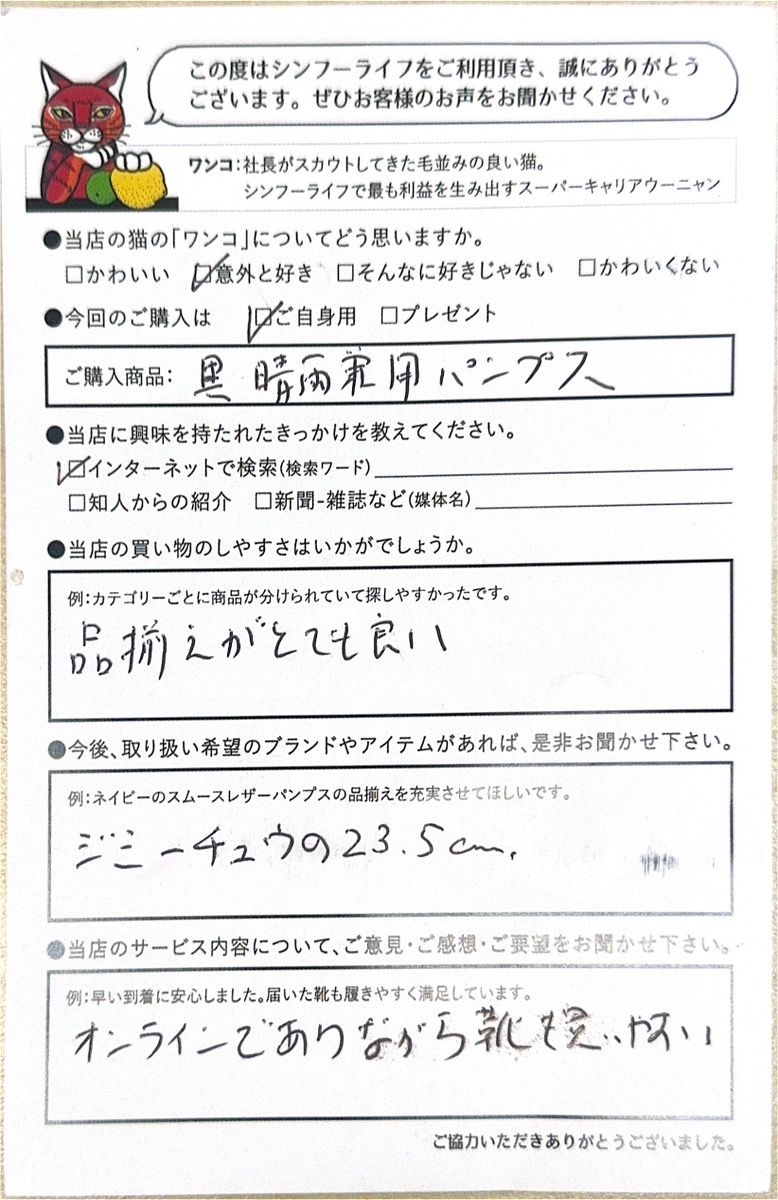 この度はシンフーライフをご利用頂き、誠にありがとう
ございます。ぜひお客様のお声をお聞かせください。
ワンコ:社長がスカウトしてきた毛並みの良い猫。
シンフーライフで最も利益を生み出すスーパーキャリアウーニャン
●当店の猫の「ワンコ」についてどう思いますか。
□かわいい ☑意外と好き □そんなに好きじゃない □かわいくない
●今回のご購入は ☑ご自身用 □プレゼント
ご購入商品: 黒 晴雨兼用パンプス
●当店に興味を持たれたきっかけを教えてください。
☑インターネットで検索(検索ワード)
□知人からの紹介 □新聞-雑誌など(媒体名)
●当店の買い物のしやすさはいかがでしょうか。
例:カテゴリーごとに商品が分けられていて探しやすかったです。
品揃えがとても良い
●今後、取り扱い希望のブランドやアイテムがあれば、是非お聞かせ下さい。
例:ネイビーのスムースレザーパンプスの品揃えを充実させてほしいです。
ジミーチュウの23.5cm.
●当店のサービス内容について、ご意見・ご感想・ご要望をお聞かせ下さい。
例:早い到着に安心しました。届いた靴も履きやすく満足しています。
オンラインでありながら靴も買いやすい
ご協力いただきありがとうございました。